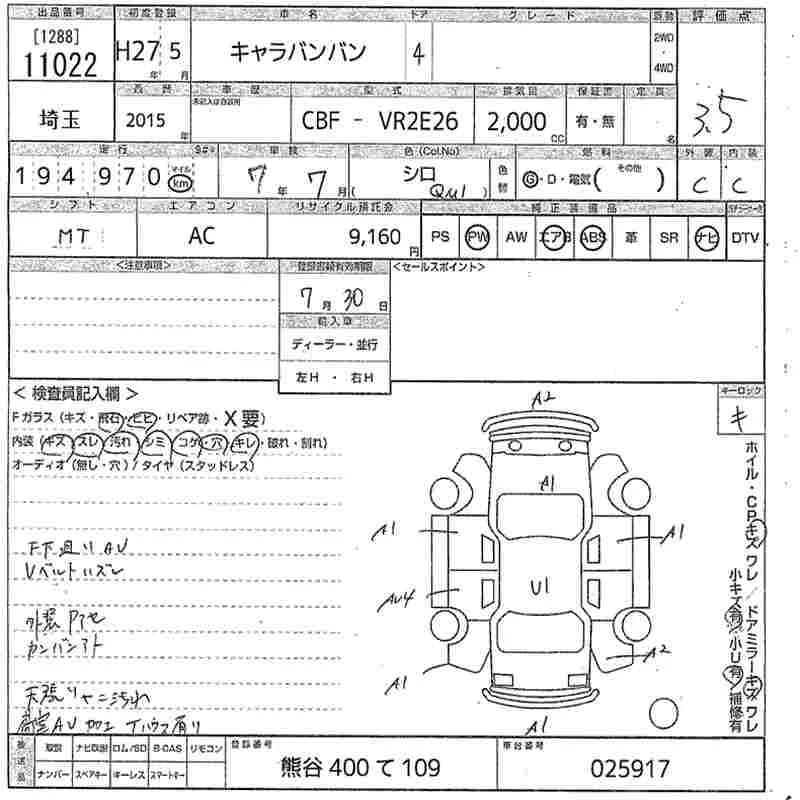 出品番号 初度登録 車名 ドア グレード 駆動 評価点
[1288]
11022 H27年 5月 キャラバンバン 4 2WD・4WD 3.5
埼玉 2015年 未記入は自家用 CBF - VR2E26 2,000CC 有・無 名
車歴 型式 排気量 保証書 定員
走行 車検 色(Col.No) 燃料 外装 内装
194970 マイル km 7年 7月 ( シロ QM1 ) 色替 G・D・電気( その他 ) C C
シフト エアコン リサイクル預託金 純正装備品
MT AC 9,160円 PS PW AW エアB ABS 革 SR ナビ DTV
<注意事項> 登録書類有効期限 <セールスポイント>
7月 30日
輸入車
ディーラー・並行
左H ・ 右H
< 検査員記入欄 > キーロック
キ
Fガラス(キズ・飛石・ヒビ・リペア跡・X要)
内装(キズ・スレ・汚れ・シミ・コゲ・穴・キレ・破れ・割れ)
オーディオ(無し・穴)/タイヤ(スタッドレス)
F下廻りAU
Vベルトハズレ
外装Pアセ
カンバンアト
天張りヤニ汚れ
A2
A1
A1
A1
U1
AU4
A2
A1
A1
ホイル・CPキズ ワレ/ドアミラーキズ ワレ
小キズ有/小U有/補修有
後送品 取説 ナビ取説 ロム/SD B-CAS リモコン 登録番号 車台番号
ナンバー スペアキー キーレス スマートキー 熊谷 400 て 109 025917